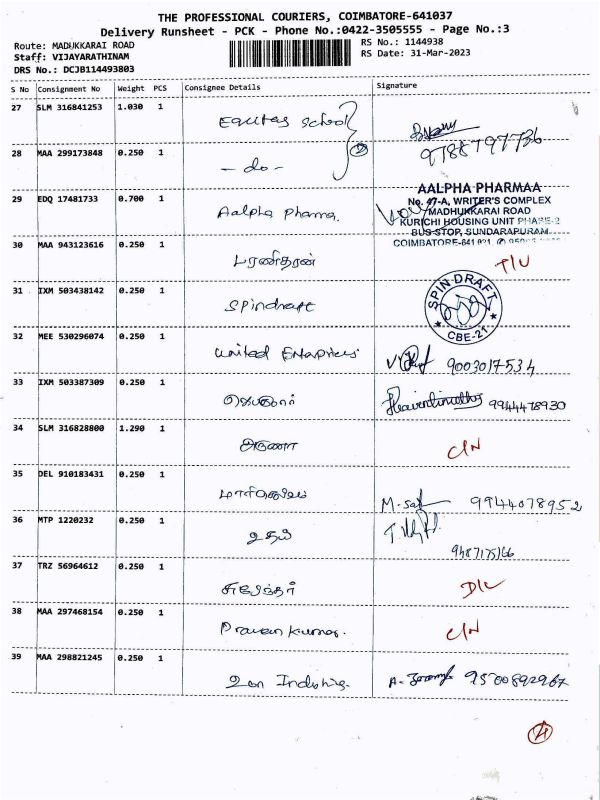 THE PROFESSIONAL COURIERS, COIMBATORE-641037
Delivery Runsheet - PCK - Phone No.:0422-3505555 - Page No.:3
Route: MADUKKARAI ROAD
RS No.: 1144938
Staff: VIJAYARATHINAM
RS Date: 31-Mar-2023
DRS No.: DCJB114493803
S No Consignment No Weight PCS Consignee Details Signature
27 SLM 316841253 1.030 1 Equitas School
9788797736
28 MAA 299173848 0.250 1 - do - 2
29 EDQ 17481733 0.700 1 Aalpha Pharma.
AALPHA PHARMAA
No. 47-A, WRITER'S COMPLEX
MADHUKKARAI ROAD
KURICHI HOUSING UNIT PHASE-2
BUS STOP, SUNDARAPURAM
COIMBATORE-641 021.
30 MAA 943123616 0.250 1 பரணிதரன் T/U
31 IXM 503438142 0.250 1 Spindraft
SPIN DRAFT
CBE-21
32 MEE 530296074 0.250 1 United Enterprises 9003017534
33 IXM 503387309 0.250 1 9944478930
34 SLM 316828800 1.290 1 அருணா C/N
35 DEL 910183431 0.250 1 M. 9944078952
36 MTP 1220232 0.250 1 உதய்
9487175166
37 TRZ 56964612 0.250 1 D/L
38 MAA 297468154 0.250 1 Praveen Kumar. C/N
39 MAA 298821245 0.250 1 A. 9500892967